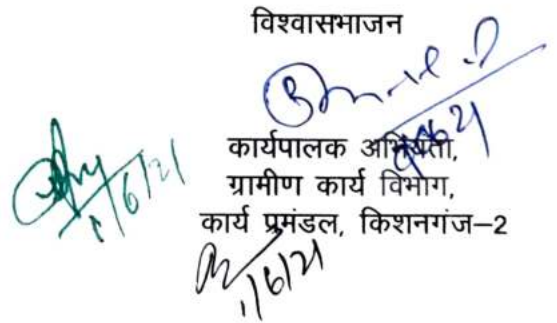 विश्वासभाजन
कार्यपालक अभियंता,
ग्रामीण कार्य विभाग,
कार्य प्रमंडल, किशनगंज–2
1/6/21
1/6/21